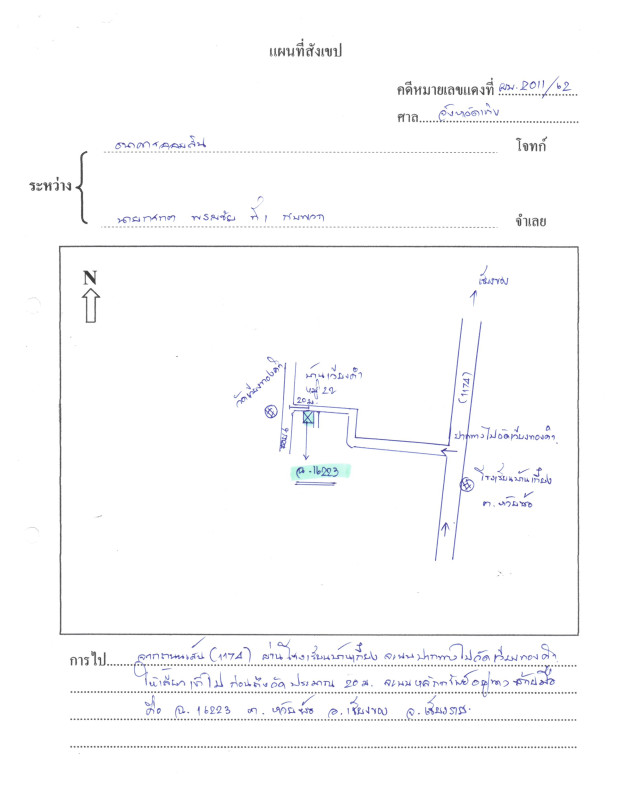 แผนที่สังเขป
คดีหมายเลขแดงที่ ผบ.2011/62
ศาล จังหวัดเทิง
ธนาคารออมสิน โจทก์
ระหว่าง
ที่ 1 จำเลย
N
เชียงของ
(1174)
บ้านเวียงคำ
หมู่ 22
20 ม.
วัดเวียงทองคำ
ปากทางไปวัดเวียงทองคำ
ฉ.16223
โรงเรียนบ้านเกี๋ยง
ต. ห้วยซ้อ
การไป จากถนนเส้น (1174) ผ่านโรงเรียนบ้านเกี๋ยง จะพบปากทางไปวัดเวียงทองคำ
ให้เลี้ยวเข้าไป ก่อนถึงวัด ประมาณ 20 ม. จะพบหลักทรัพย์อยู่ทางซ้ายมือ
คือ ฉ. 16223 ต. ห้วยซ้อ อ. เชียงของ จ. เชียงราย